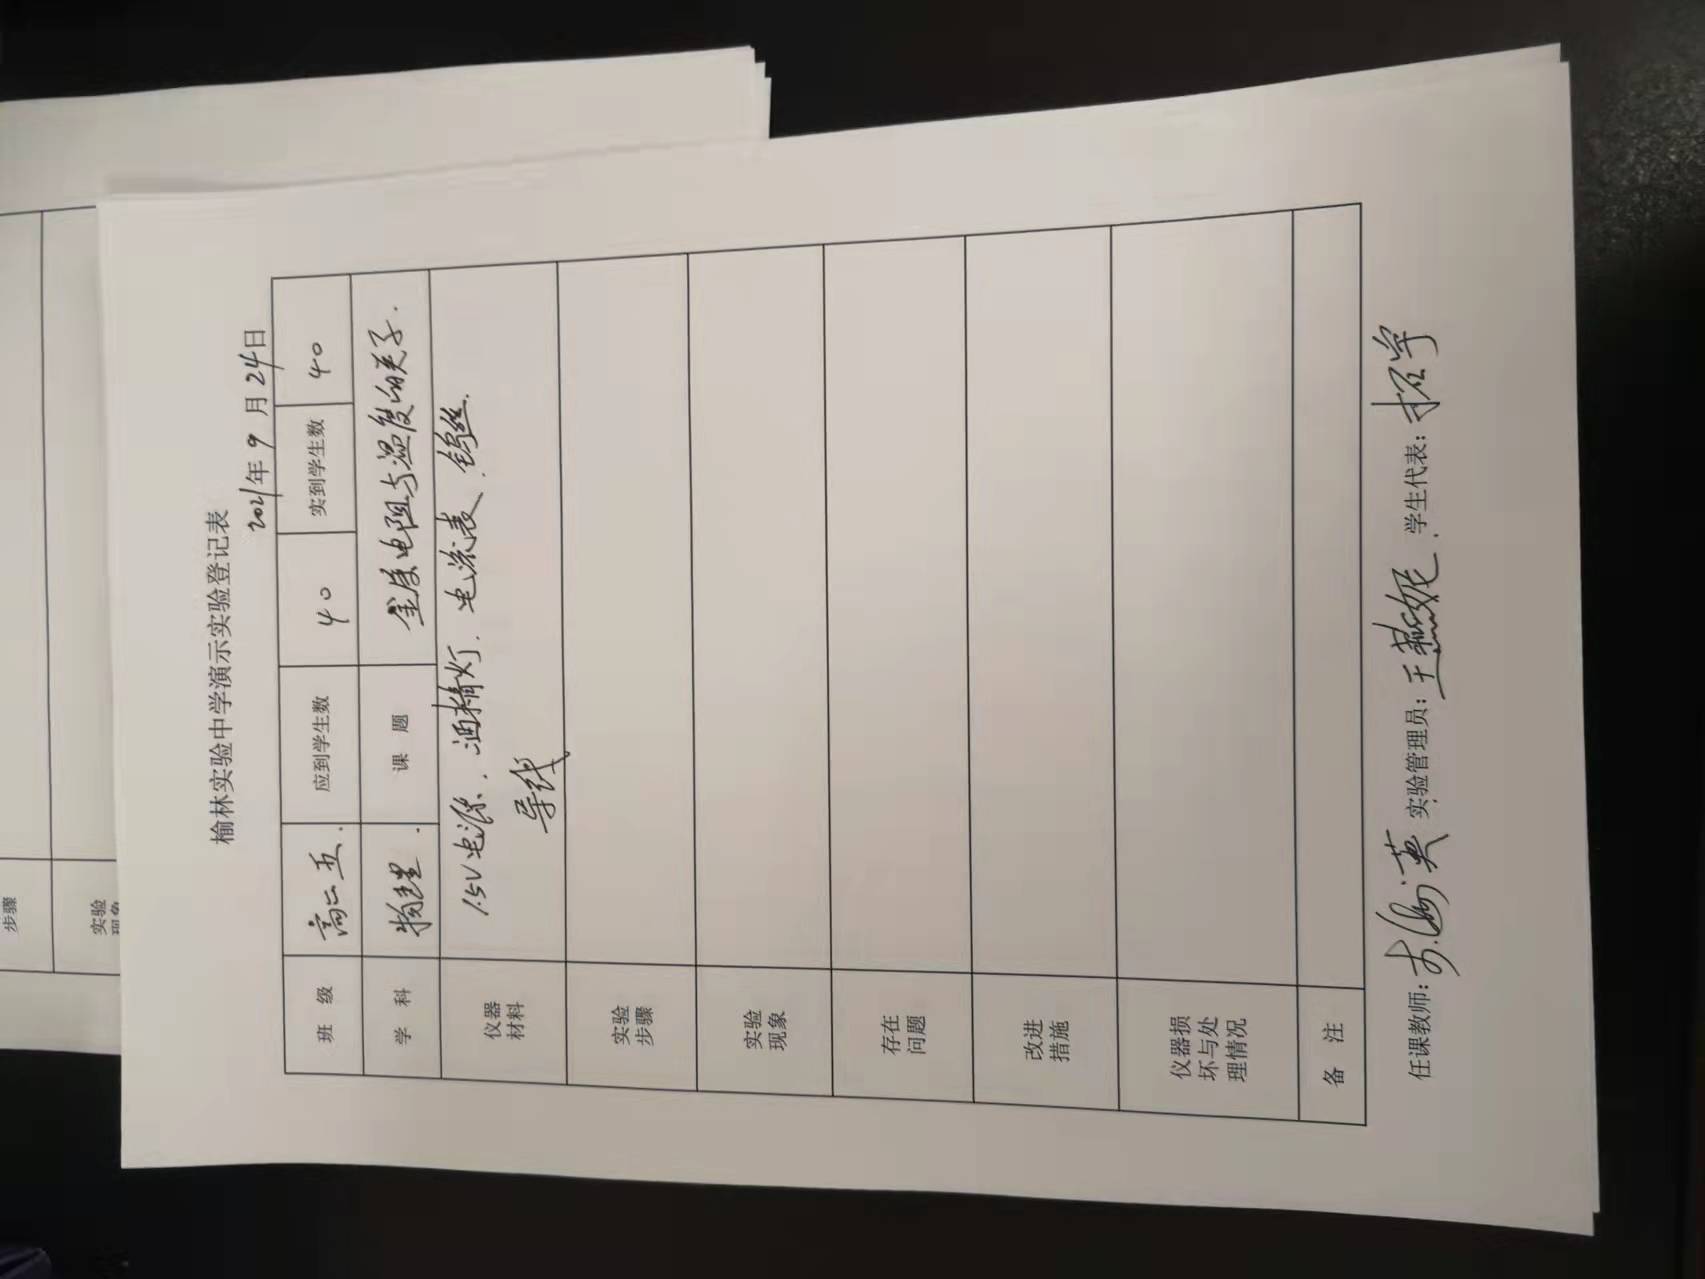 榆林实验中学演示实验登记表
2021年 9 月 24日
班 级 高二五. 应到学生数 40 实到学生数 40
学 科 物理. 课 题 金属电阻与温度的关系.
仪器 1.5V电源、酒精灯、电流表、钨丝.
材料 导线
实验
步骤
实验
现象
存在
问题
改进
措施
仪器损
坏与处
理情况
备 注
任课教师: 实验管理员: 学生代表:
步骤
实验
现象